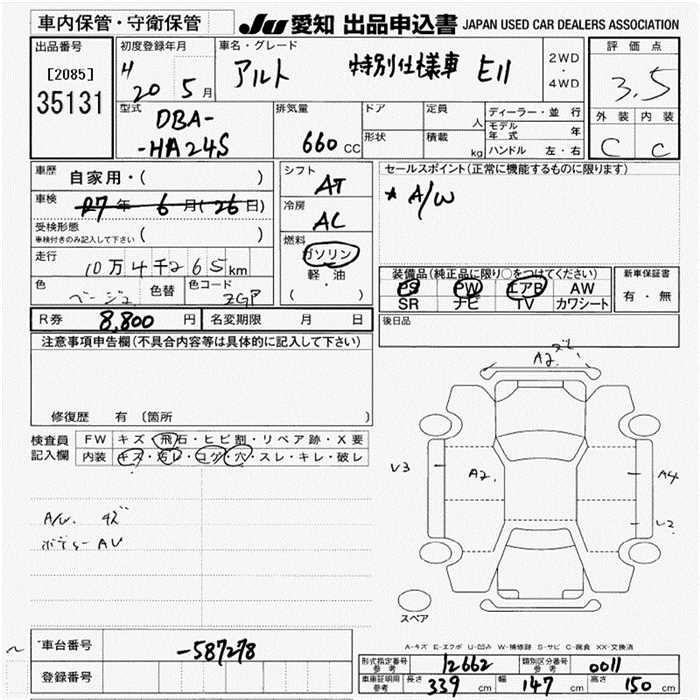 車内保管・守衛保管
JU 愛知 出品申込書 JAPAN USED CAR DEALERS ASSOCIATION
出品番号
[2085]
35131
初度登録年月
H 20 5月
車名・グレード
アルト 特別仕様車 EII
2WD
・
4WD
評価点
3.5
外装 内装
C C
型式
DBA-
-HA24S
排気量
660 CC
ドア
形状
定員 人
積載 kg
ディーラー・並行
モデル年式 年
ハンドル 左・右
車歴 自家用・( )
車検 27年 6月(26日)
受検形態
車検付きのみ記入して下さい ( )
走行
10万4千265km
色 ベージュ 色替 色コード ZGP
シフト
AT
冷房
AC
燃料
ガソリン
軽・油
( )
セールスポイント(正常に機能するものに限ります)
* A/W
装備品(純正品に限り○をつけてください)
PS PW エアB AW
SR ナビ TV カワシート
新車保証書
有・無
R券 8,800 円 名変期限 月 日
後日品
注意事項申告欄(不具合内容等は具体的に記入して下さい)
修復歴 有 〔箇所 〕
検査員
記入欄
FW キズ・飛石・ヒビ割・リペア跡・X要
内装 キズ・汚レ・コゲ・穴・スレ・キレ・破レ
A/W キズ
ボディー AU
A2
V3
A2.
A4
U2
スペア
A-キズ E-エクボ U-凹み W-補修跡 S-サビ C-腐食 XX-交換済
車台番号 -587278
登録番号
形式指定番号
参考 12662
類別区分番号
参考 0011
車庫証明用
参考 長さ 339 cm 幅 147 cm 高さ 150 cm